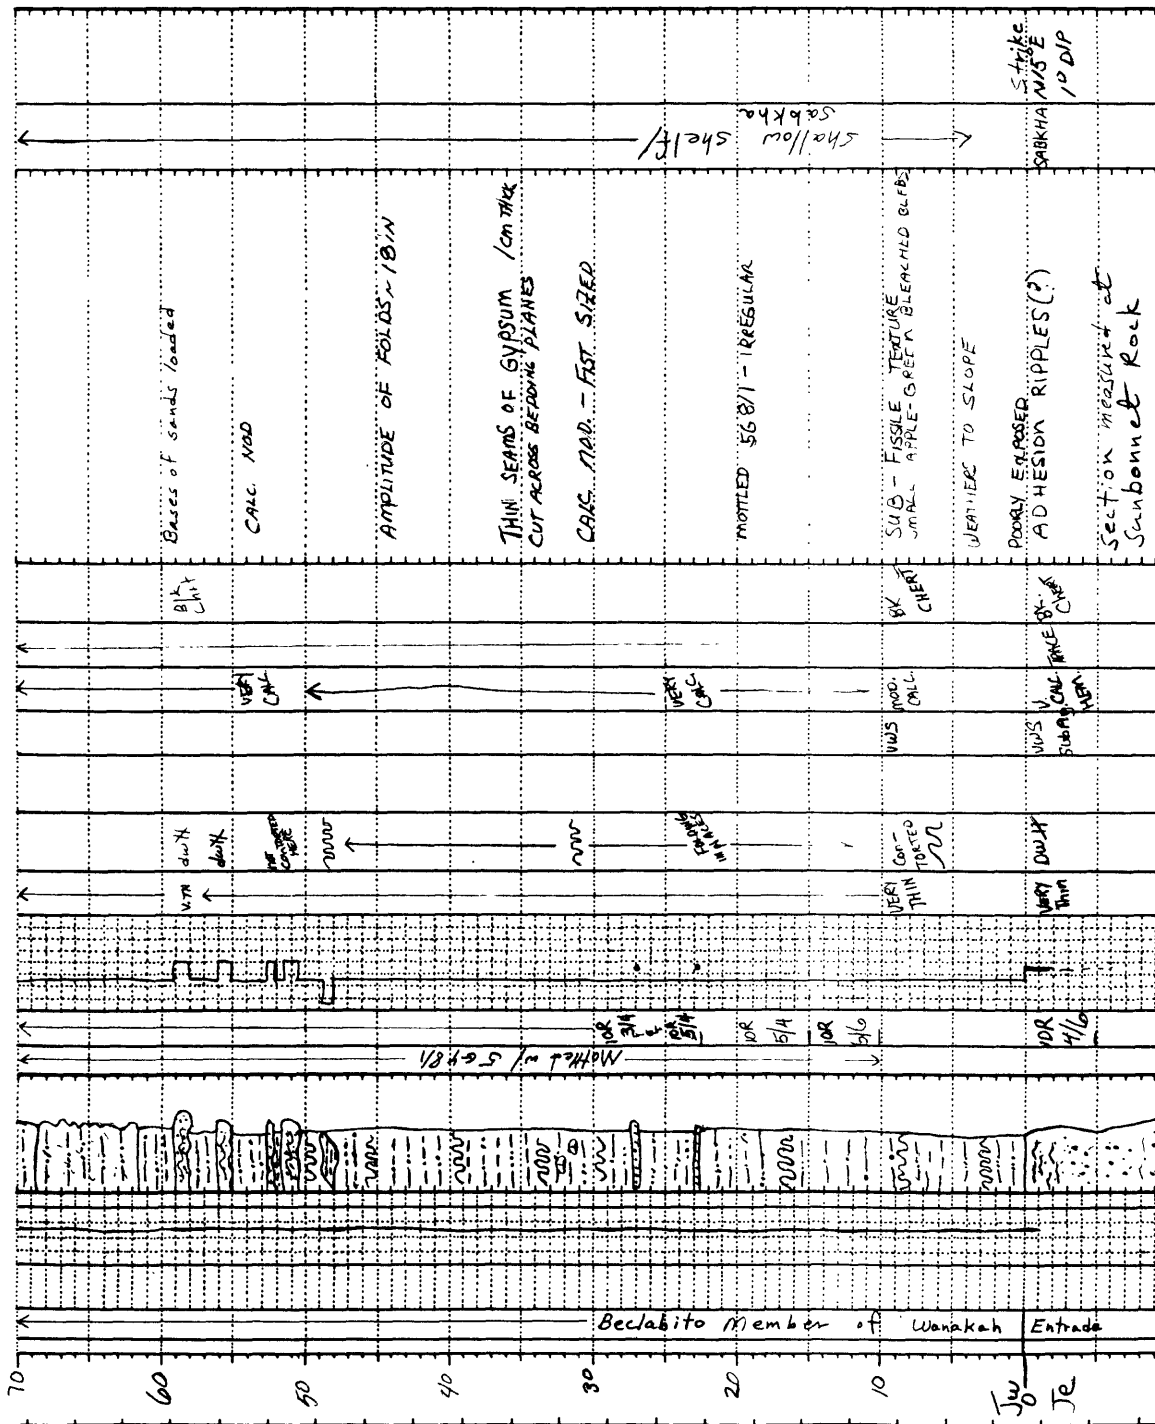 Strike
N15°E
1° DIP
SABKHA
Shallow shelf/
Sabkha
Bases of sands loaded
CALC. NOD
AMPLITUDE OF FOLDS ~ 18 IN
THIN SEAMS OF GYPSUM 1cm THICK
CUT ACROSS BEDDING PLANES
CALC. NOD. - FIST SIZED
MOTTLED 5G 8/1 - IRREGULAR
SUB-FISSILE TEXTURE
SMALL APPLE-GREEN BLEACHED BLEBS
WEATHERS TO SLOPE
POORLY EXPOSED
ADHESION RIPPLES(?)
Section measured at
Sunbonnet Rock
Blk
Chrt
BK
CHERT
BK
Chert
TRACE
VERY
CALC
VERY
CALC
MOD.
CALC.
V. CALC
HEM
VWS
VWS
SubAg.
dwH
dwH
NOT
CONTORTED
HERE
FOLDING
IN PLACES
CON-
TORTED
DWH
V.TN
VERY
THIN
VERY
Thin
10R
3/4
10R
5/4
10R
5/4
10R
5/6
10R
4/6
Mottled w/ 5GY8/1
Beclabito Member of Wanakah
Entrada
70
60
50
40
30
20
10
0
Jw
Je